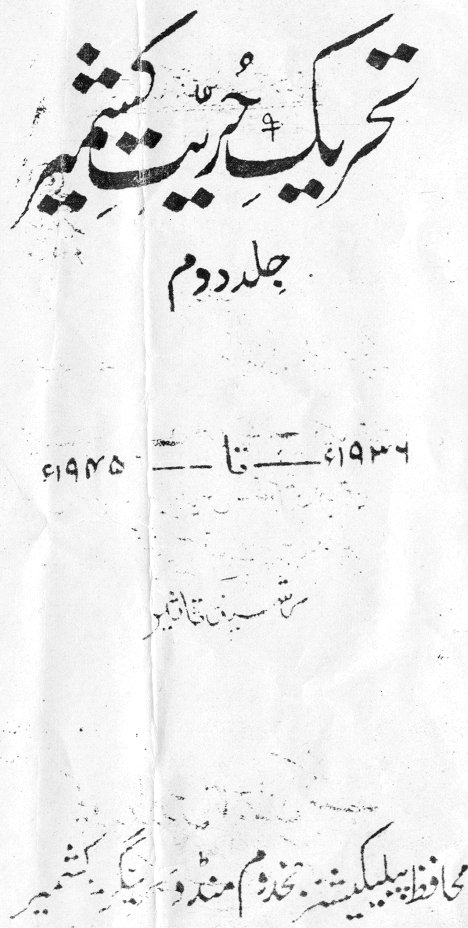 تحریکِ حُریّتِ کشمیر
جِلد دوم
۱۹۳۶ء تا ۱۹۴۵ء
رشید تاثیر
محافظ پبلیکیشنز مخدوم منڈو سرینگر کشمیر